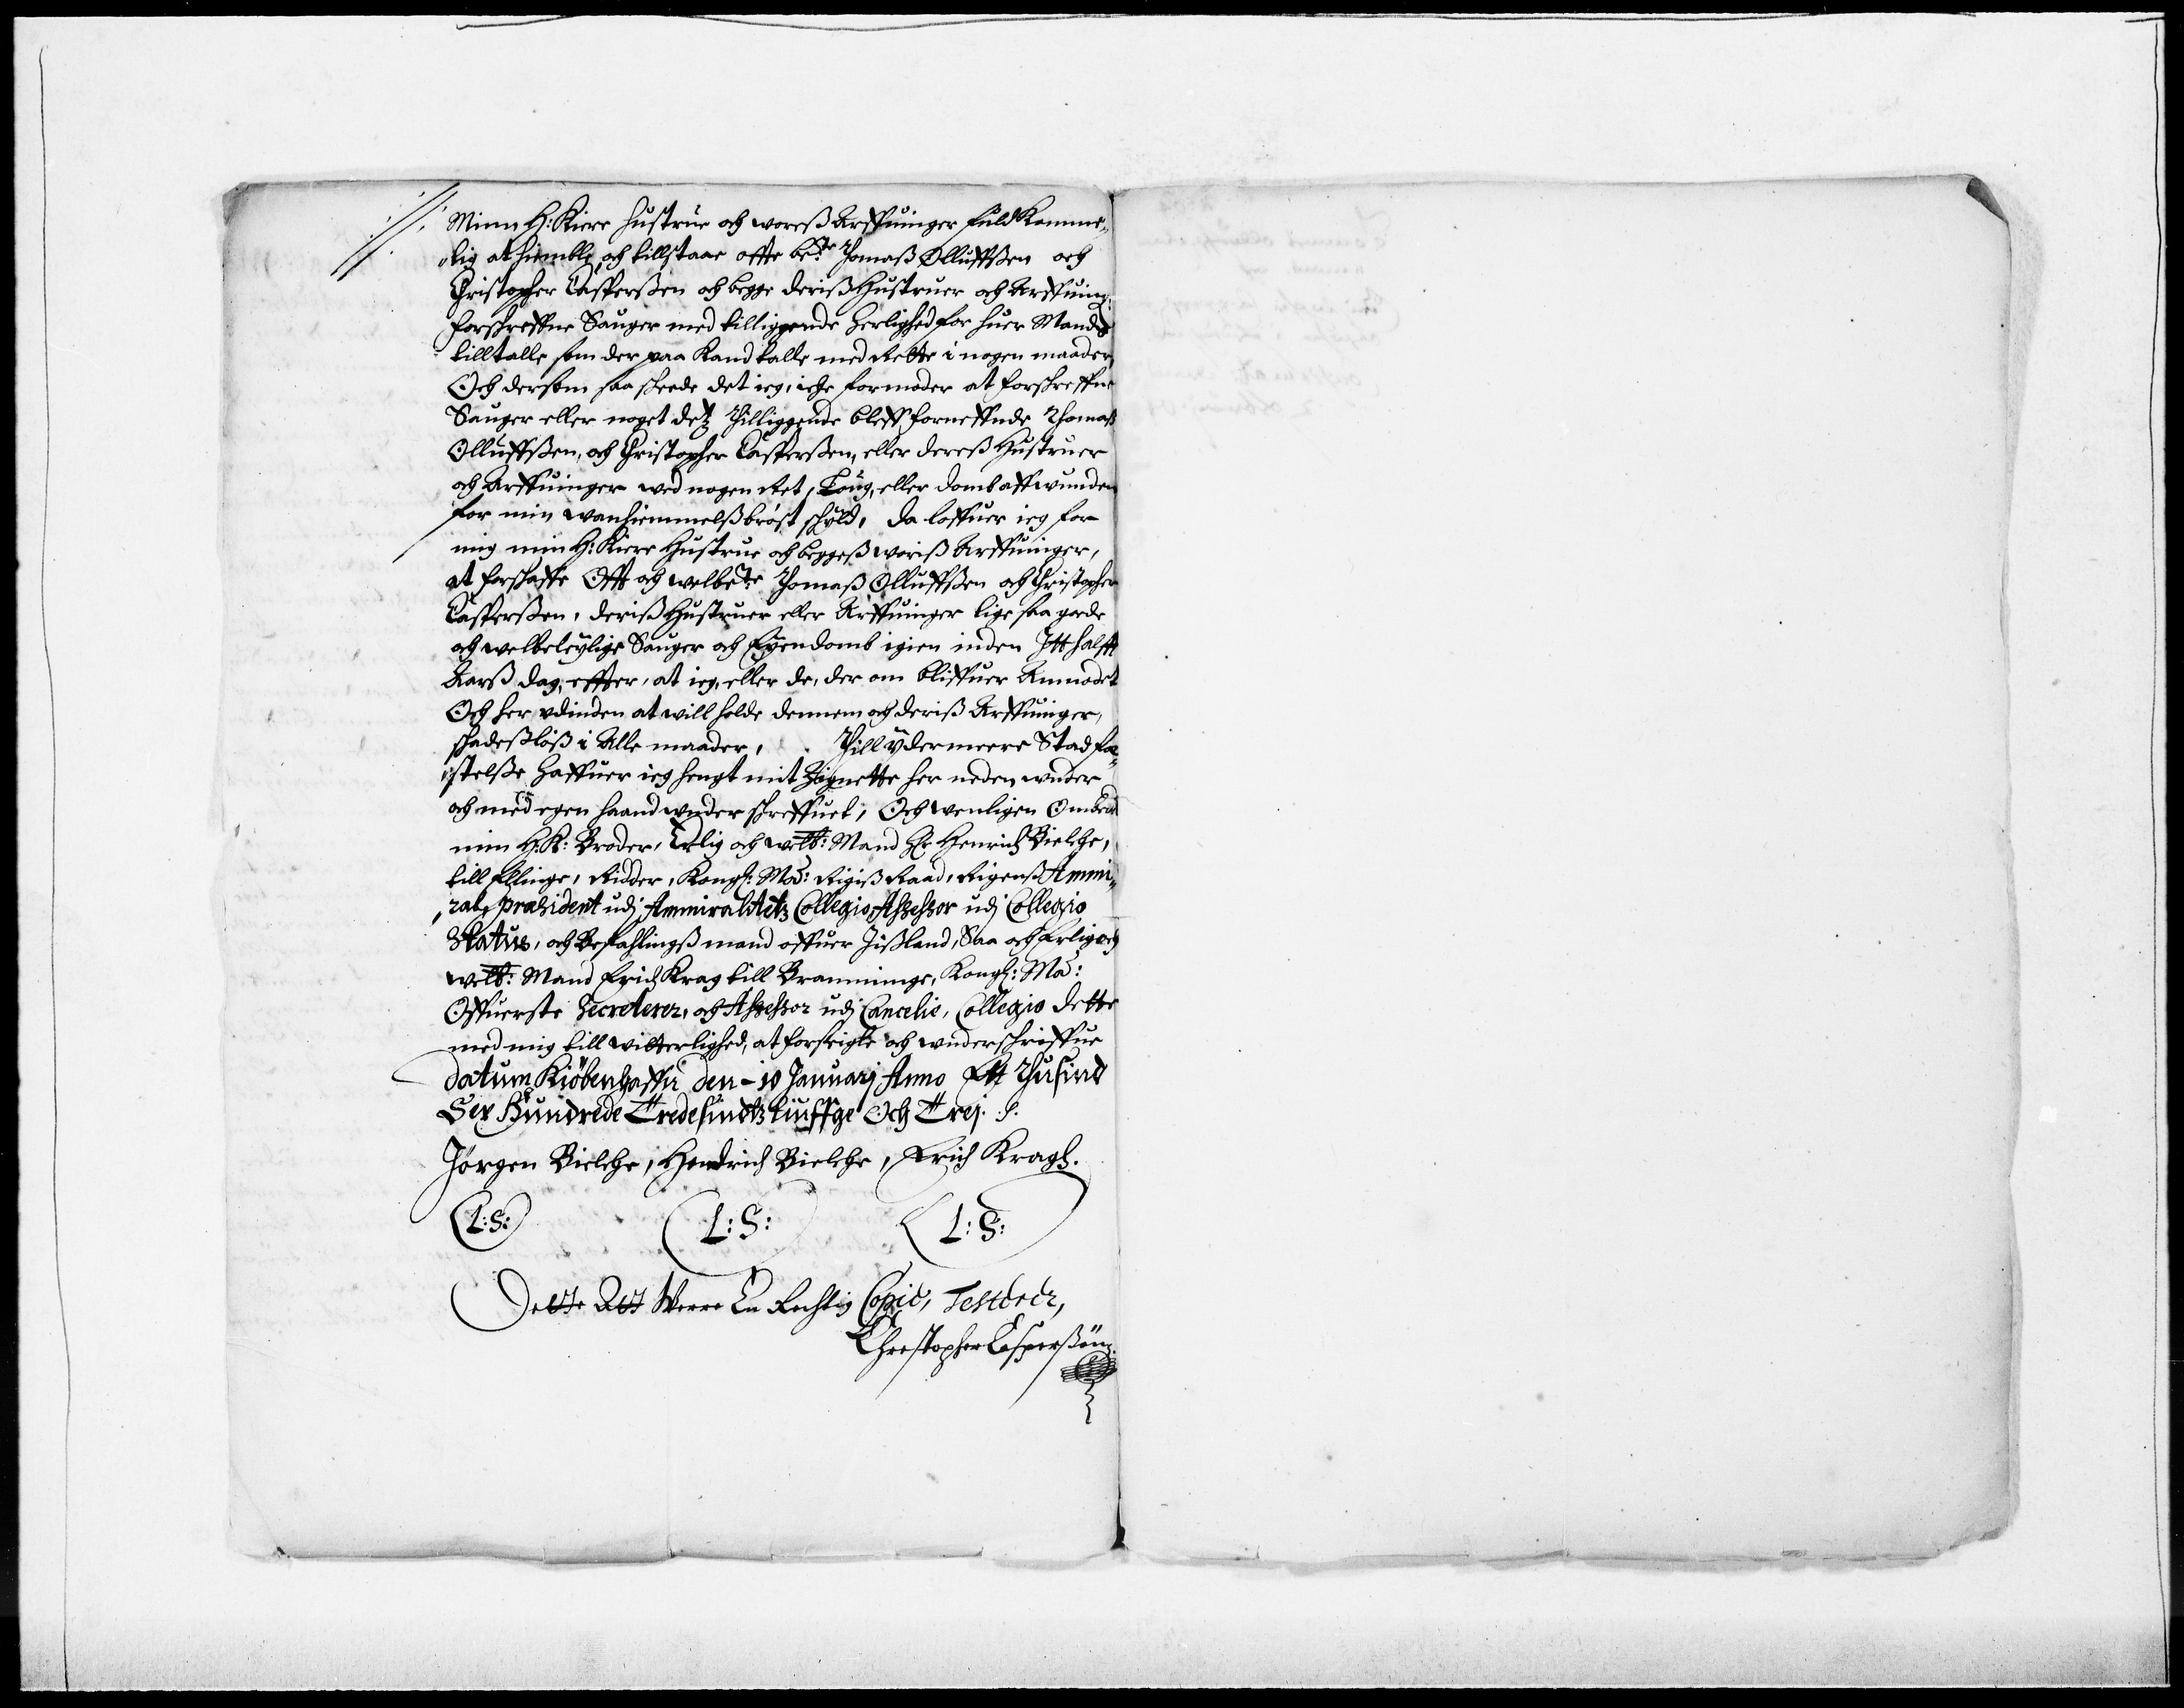 Minn H: Kiere hustrue och woreß Arffuinger fuld Komme„
„lig at hiemble, och tillstaae offte be:te Thomaß Olluffßen och
Christopher Casperßen och begge deriß Hustruer och Arffuing:
forschreffne Sauger med tilliggende herlighed for huer Mandß
tilltalle som der paa Kand kalle med Rette i nogen maader,
Och dersom saa scheede det ieg, iche formoder at forschreffne
Sauger eller noget detz Thilliggende bleff forneffnde Thomaß
Olluffßen, och Christopher Casperßen, eller dereß Hustruer
och Arffuinger wed nogen Ret, Loug, eller domb affwunden
for min wanhiemmelß brøst schyld, da loffuer ieg for
mig min H: Kiere Hustrue och beggeß woriß Arffuinger,
at forschaffe Offt och welbe:te Thomaß Olluffßen och Christopher
Casperßen, deriß Hustruer eller Arffuinger lige saa goede
och welbeleylige Sauger och Eyendomb igien inden Itt halfft
Aarß dag, effter, at ieg, eller de, der om bliffuer Anmodet
Och her udinden at will holde dennem och deriß Arffuinger,
schadeßløß i Alle maader, Thill ydermeere Stadfæ„
„stelße haffuer ieg hengt mit Zignette her neden wnder
och med egen haand wnder schreffuet, Och wenligen Ombed
min H: K: Broder, Erlig och welb: Mand Hr Henrich Bielche,
till Ellinge, Ridder, Kongl: Ma: Rigiß Raad, Rigenß Ammi„
„ral, Præsident udj Ammiralitetz Collegio, Assessor udj Collegio
Status, och Befahlingß mand offuer Ißland, Saa och Erlig och
welb: Mand Erich Krag till Bramminge, Kongl: Ma:
Offuerste Secreterer, och Assessor udj Cancelie, Collegio dette
med mig till witterlighed, at forseigle och wnderschriffue
datum Kiöbenhaffn den – 10 Januarj Anno Ett Thusind
Sex Hundrede Tredesindtz tiuffge Och Trej. :/:
Jörgen Bielche, Hendrich Bielche, Erich Kragh.
L:S: L:S: L:S:
Dette Att Werre En Rechtig Copie, Testerer,
Christopher Casperßön